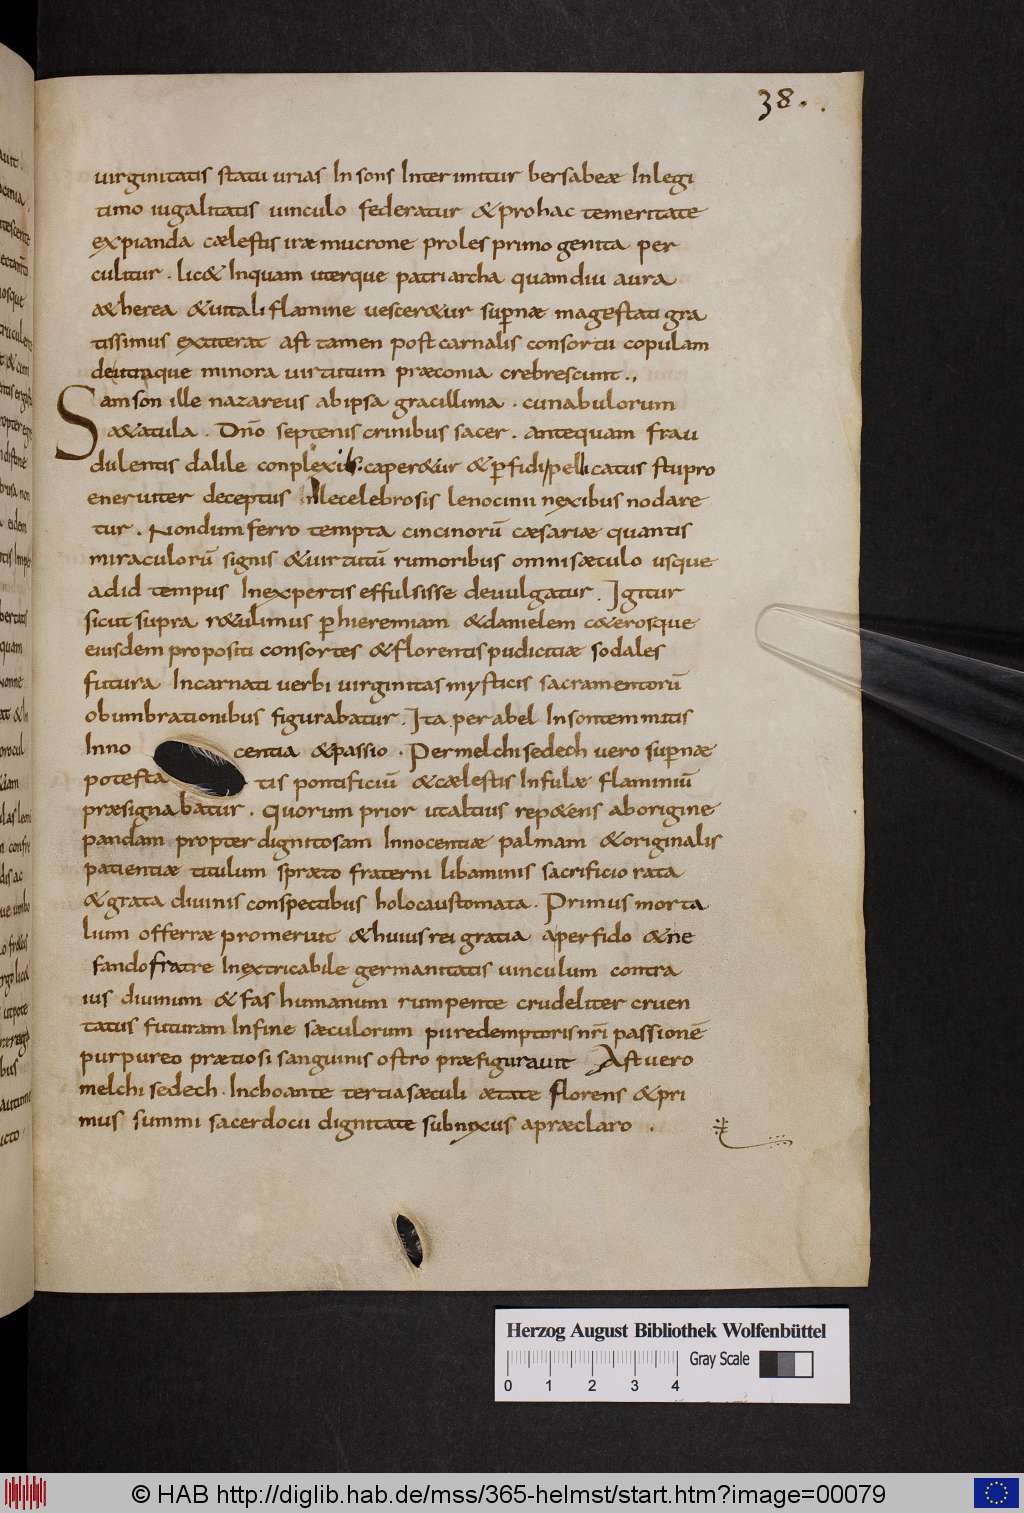 38.
uirginitatis statu urias Insons Interimitur bersabeæ Inlegi
timo iugalitatis uinculo federatur & pro hac temeritate
expianda cælestis iræ mucrone proles primogenita per
culitur . lic& Inquam uterque patriarcha quamdiu aura
a&herea & uitali flamine uescer&ur sup̄næ magestati gra
tissimus extiterat ast tamen post carnalis consortii copulam
minora uirtutum præconia crebrescunt .,
Samson ille nazareus ab ipsa gracillima . cunabulorum
a&atula . Dn̄o septenis crinibus sacer . antequam frau
dulentis dalile conplexib; caper&ur & p̄fidi pellicatus stupro
eneruiter deceptus Inlecelebrosis lenocinii nexibus nodare
tur . Nondum ferro tempta cincinorū cæsariæ quantis
miraculorū signis & uirtutū rumoribus omni sæculo usque
ad id tempus Inexpertis effulsisse deuulgatur . Igitur
sicut supra r&ulimus p̄ hieremiam & danielem c&erosque
eiusdem propositi consortes & florentis pudicitiæ sodales
futura Incarnati uerbi uirginitas mysticis sacramentorū
obumbrationibus figurabatur . Ita per abel Insontem mitis
Inno centia & passio . Per melchisedech uero sup̄næ
potesta tis pontificiū & cælestis Infulæ flaminiū
præsignabatur . Quorum prior ut altius rep&ens ab origine
pandam propter dignitosam Innocentiæ palmam & originalis
patientiæ titulum spræto fraterni libaminis sacrificio rata
& grata diuinis conspectibus holocaustomata . Primus morta
lium offerræ promeruit & huius rei gratia a perfido & ne
fando fratre Inextricabile germanitatis uinculum contra
ius diuinum & fas humanum rumpente crudeliter cruen
tatus futuram In fine sæculorum pii redemptoris nr̄i passionē
purpureo prætiosi sanguinis ostro præfigurauit Ast uero
melchisedech . Inchoante tertia sæculi ætate florens & pri
mus summi sacerdocii dignitate subnixus a præclaro .
Herzog August Bibliothek Wolfenbüttel
Gray Scale
0 1 2 3 4
© HAB http://diglib.hab.de/mss/365-helmst/start.htm?image=00079